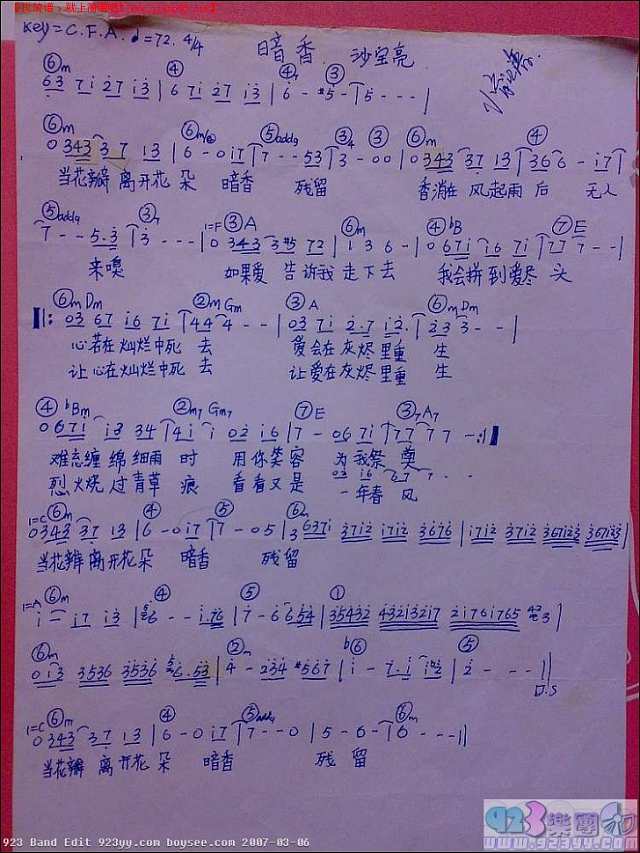 Key=C.F.A. ♩=72. 4/4
暗香 沙宝亮
⑥m ④ ④ ③
6̣3 7i 27 i3 | 6 7i 27 i3 | 6 - #5 - | 5 - - - |
⑥m ⑥m/ ⑤add9 ③4 ③ ⑥m ④
0 343 37 13 | 6 - 0 i7 | 7 - - 53 | 3 - 00 | 0 343 37 13 | 36 6 - i7 |
当花瓣 离开花 朵 暗香 残留 香消在 风起雨 后 无人
⑤add9 ③7 1=F ③A ⑥m ④bB ⑦E
7 - - 5.3 | 3 - - - | 0 343 3#5 72 | 1 3 6 - | 0 671 i6 7i | 77 7 - - |
来嗅 如果爱 告诉我 走下去 我会拼 到爱尽 头
⑥m Dm ②m Gm ③ A ⑥m Dm
‖: 03 67 i6 7i | 44 4 - - | 03 7i 2.7 i2 | 2 3 3 - - |
心若在灿烂中死 去 爱会在灰烬里重 生
让心在灿烂中死 去 让爱在灰烬里重 生
④ bBm ②m7 Gm7 ⑦E ③7A7
0 671 i3 34 | 4i i 02 i6 | 7 - 06 7i | 77 7 7 - :‖
难忘缠 绵 细雨 时 用你笑容 为我祭 奠
03 i6 27 7
烈火烧 过青草 痕 看看又是 一年春 风
1=C ⑥m ④ ⑤ ⑥m
0343 37 13 | 6 - 0 i7 | 7 - 05 | 3 637i 37i2 i7i2 3676 | i7i2 37i2 367i23 367i23 |
当花瓣 离开花朵 暗香 残留
1=A ⑥m ④ ⑤ ①
i - i7 i3 | 6 - - i.76 | 7 - 6 654 | 35432 43213217 2i76i765 3 |
⑥m ④ ②m b⑥ ⑤
0 i3 3536 3536 6.53 | 4 - 234 #567 | i - 7.i | 2 - - - ‖
D.S
1=C ⑥m ④ ⑤add9 ⑥m
0 343 37 13 | 6 - 0 i7 | 7 - - 0 | 5 - 6 - | 6 - - - ‖
当花瓣 离开花 朵 暗香 残 留
923樂團
www.923yy.com
923 Band Edit 923yy.com boysee.com 2007-03-06